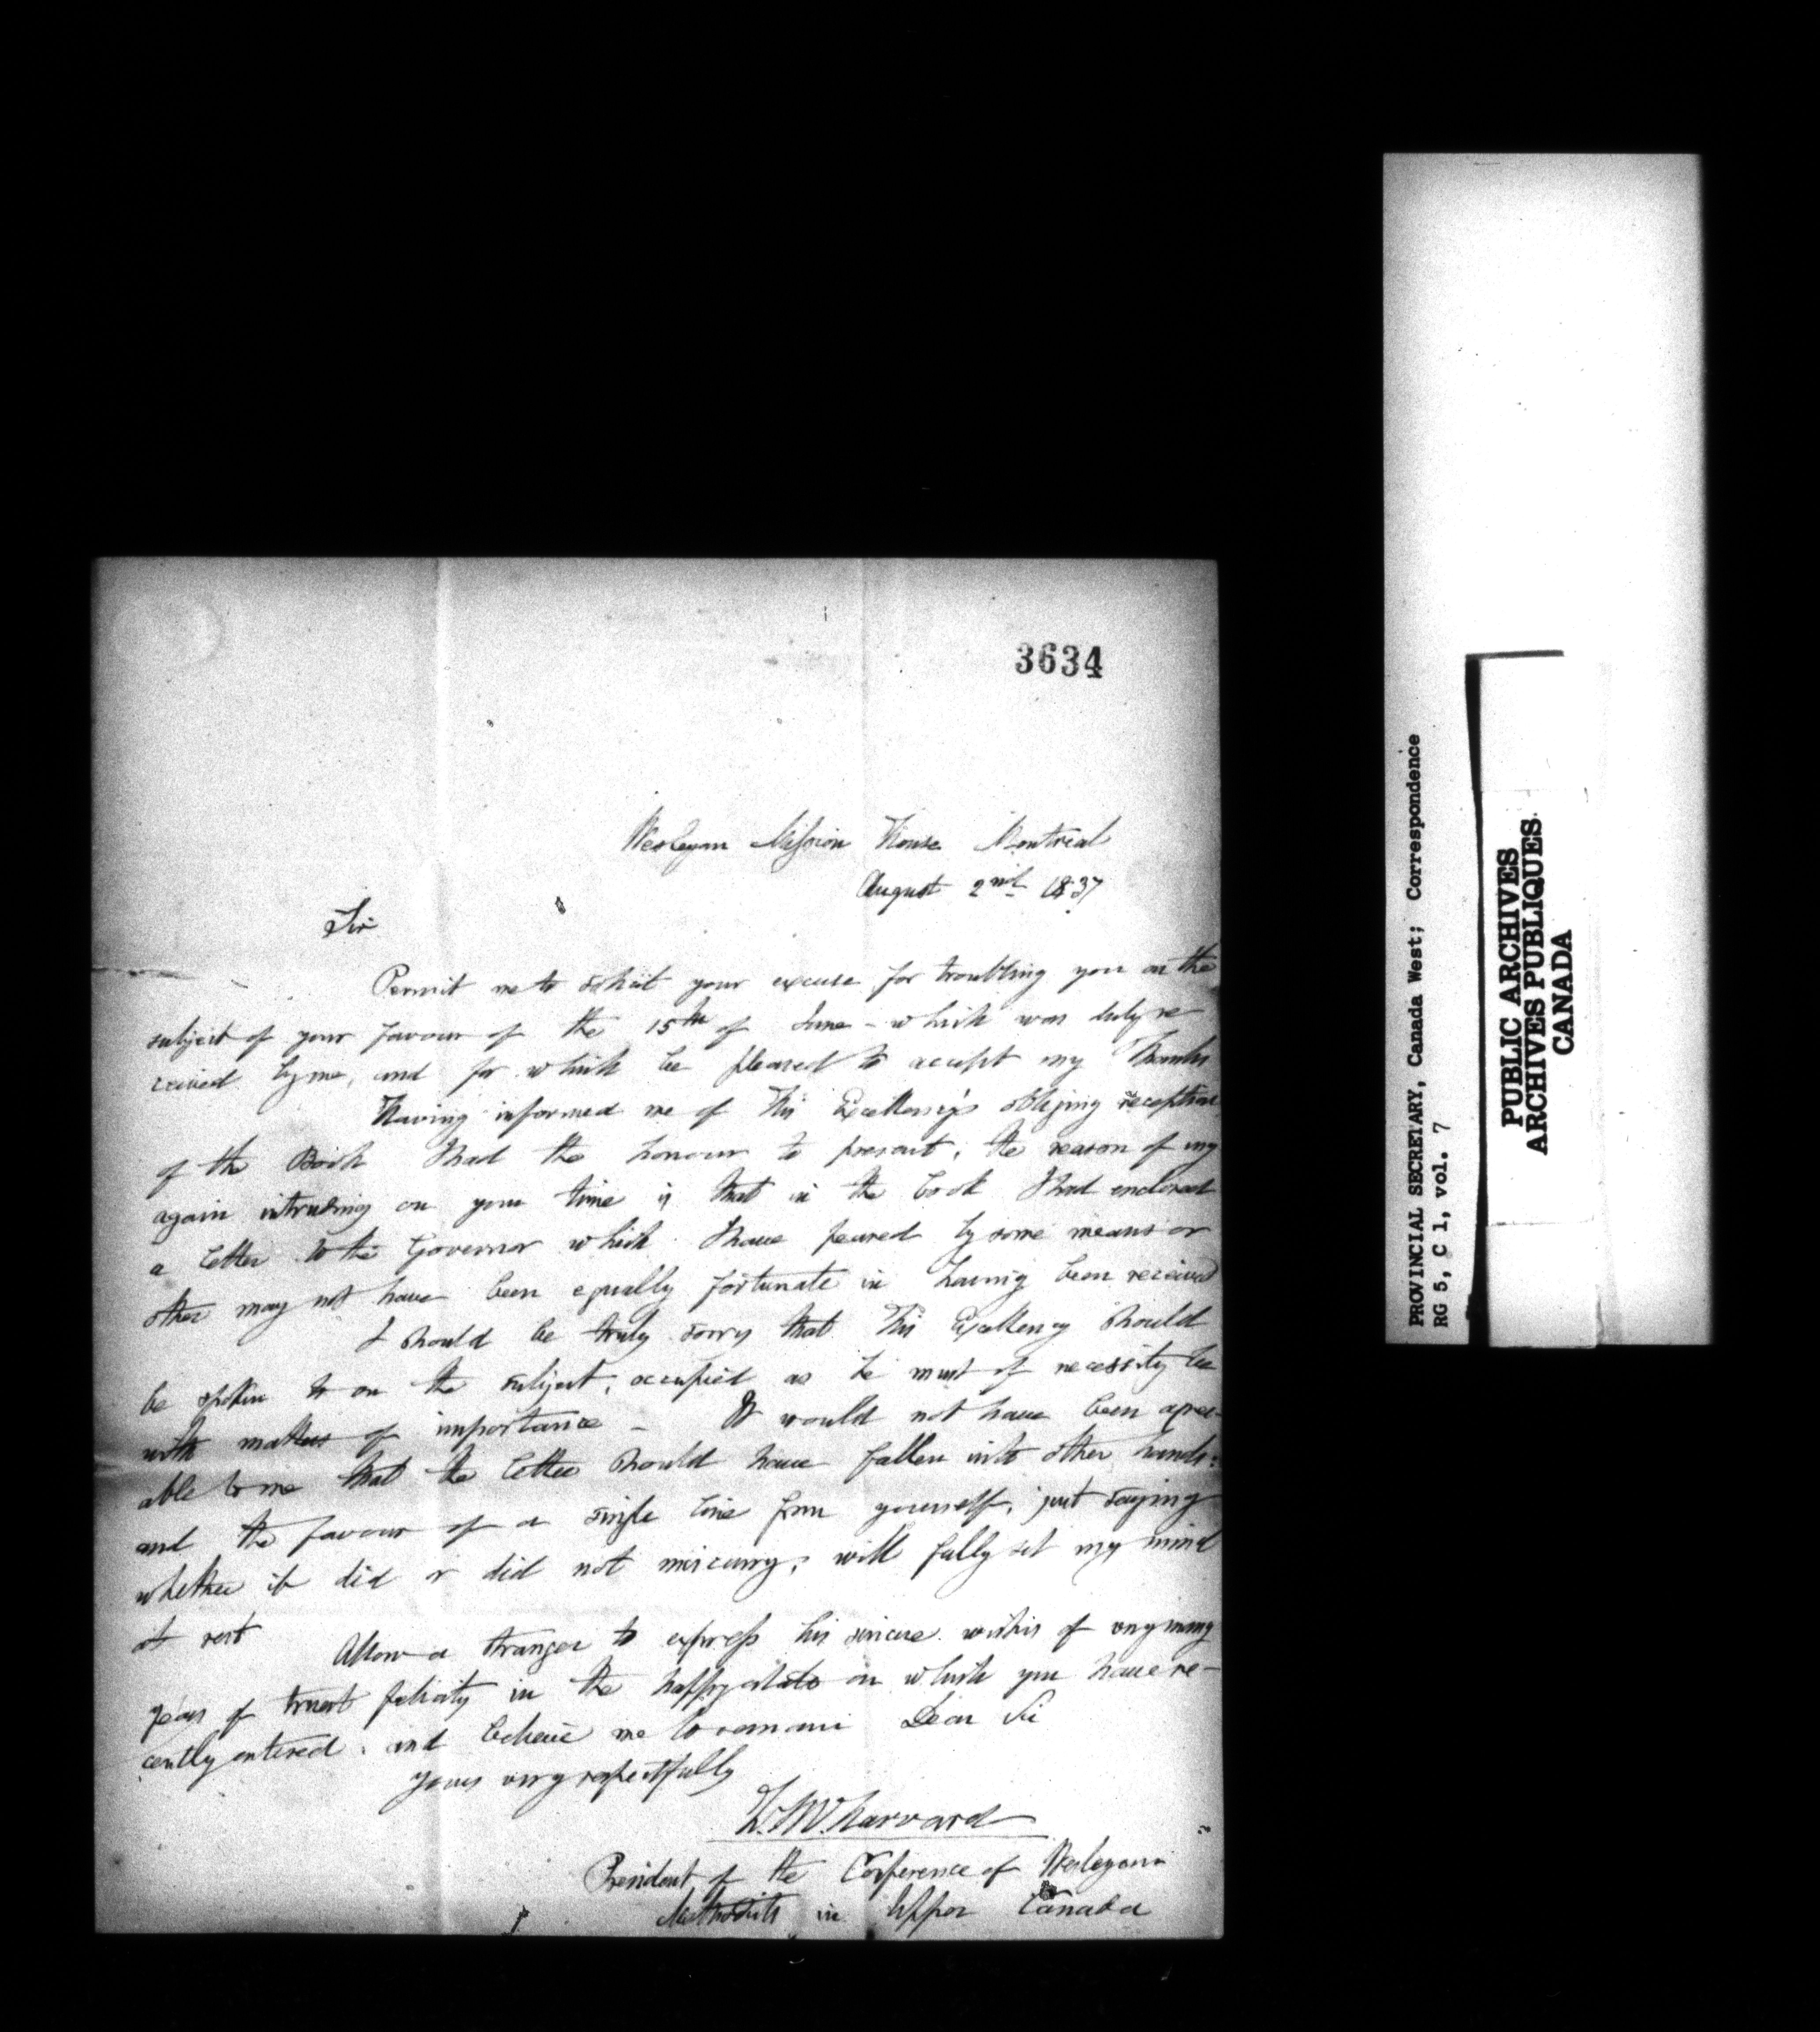 3634
Wesleyan Mission House Montreal
August 2nd 1837
Sir
Permit me to solicit your excuse for troubling you on the
subject of your favour of the 15th of June - which was duly re-
ceived by me, and for which be pleased to accept my Thanks
Having informed me of His Excellency's obliging reception
of the Book I had the honour to present, the reason of my
again intruding on your time is that in the book I had enclosed
a letter to the Governor which I have feared by some means or
other may not have been equally fortunate in having been received
I should be truly sorry that His Excellency should
be spoken to on the subject, occupied as he must of necessity be
with matters of importance - It would not have been agree-
able to me that the letter should have fallen into other hands:
and the favour of a single line from yourself, just saying
whether it did or did not miscarry, will fully set my mind
at rest
Allow a stranger to express his sincere wishes of very many
years of truest felicity in the happy state on which you have re-
cently entered, and believe me to remain Dear Sir
yours very respectfully
W. M. Harvard
President of the Conference of Wesleyan
Methodists in Upper Canada
PROVINCIAL SECRETARY, Canada West; Correspondence
RG 5, C 1, vol. 7
PUBLIC ARCHIVES
ARCHIVES PUBLIQUES
CANADA